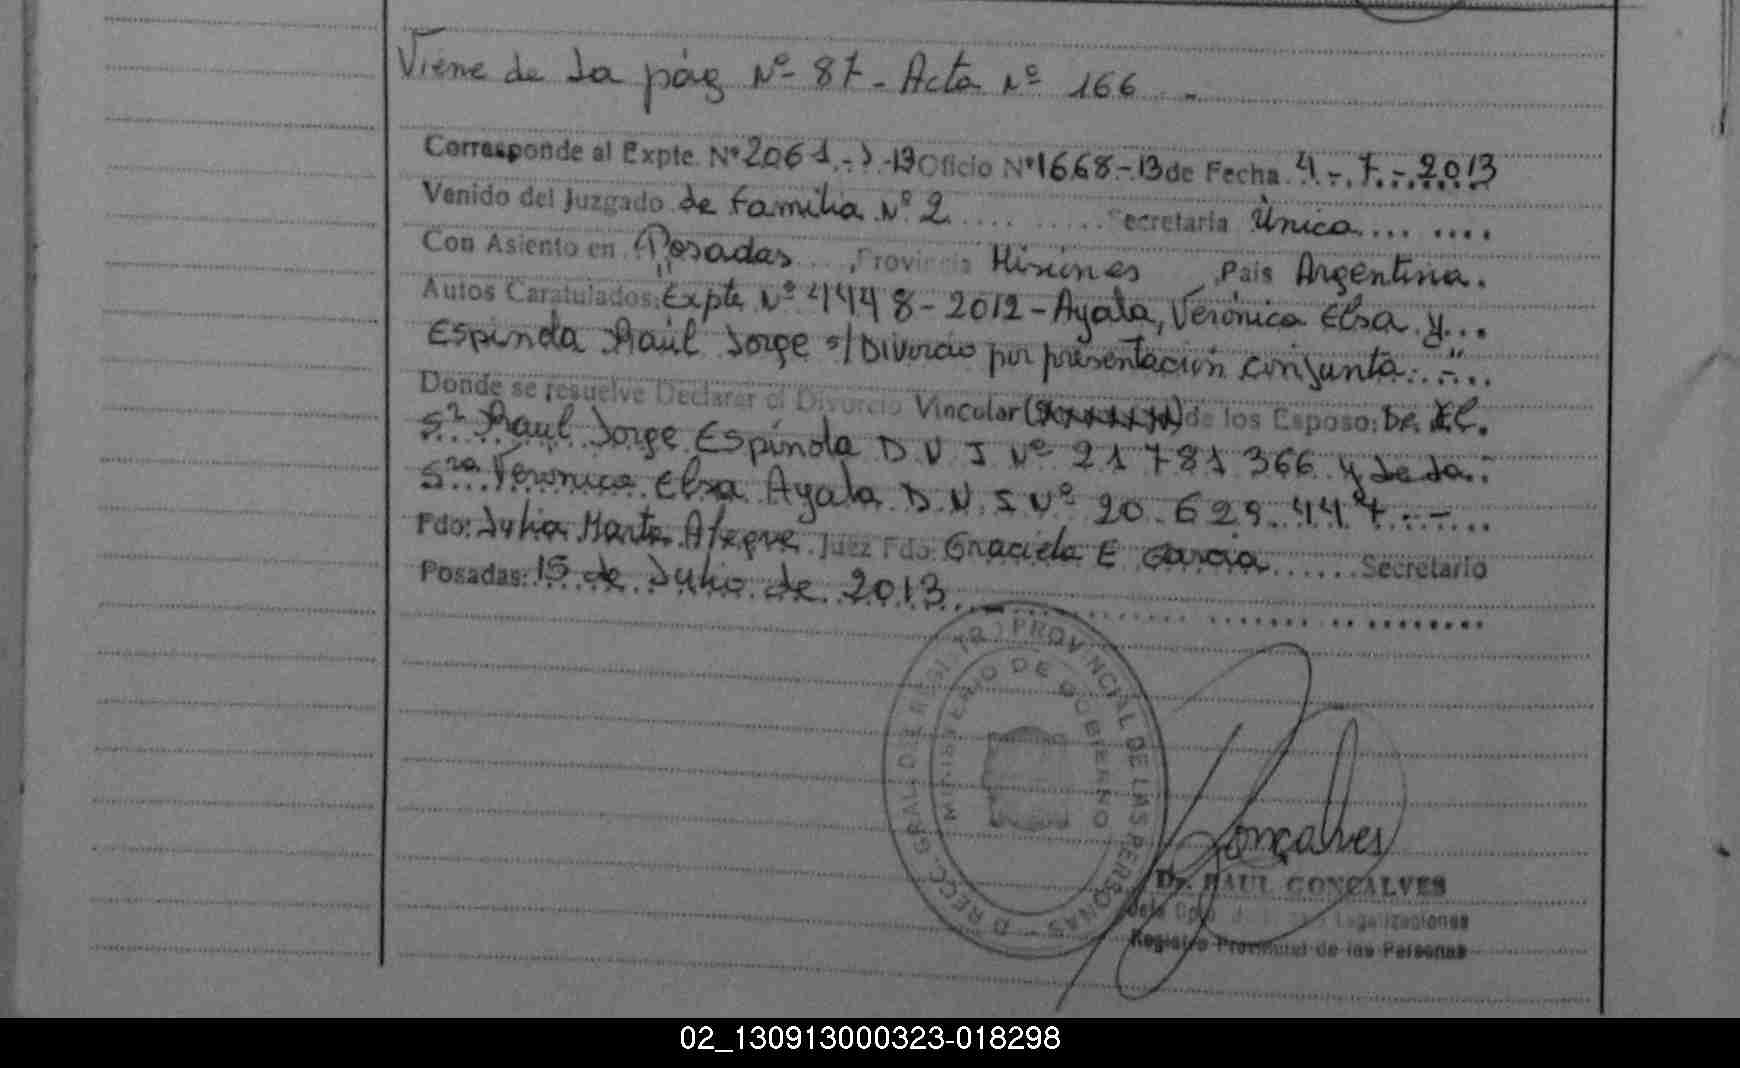 Viene de la pág Nº 87 - Acta Nº 166 -
Corresponde al Expte. Nº 2061 - J - 13 Oficio Nº 1668 - 13 de Fecha 4 - 7 - 2013
Venido del Juzgado de Familia Nº 2 Secretaria Única
Con Asiento en Posadas, Provincia Misiones, Pais Argentina.
Autos Caratulados: "Expte Nº 4448 - 2012 - Ayala, Verónica Elsa y
Espínola Raúl Jorge s/ Divorcio por presentación conjunta"
Donde se resuelve Declarar el Divorcio Vincular (xxxxxxx) de los Esposo: De El
Sr Raul Jorge Espínola D N I Nº 21 781 366 y de la
Sra Verónica Elsa Ayala D.N.I Nº 20.629.447.-
Fdo: Julia Marta Juez Fdo: Graciela E Garcia Secretario
Posadas: 15 de Julio de 2013
PROVINCIAL DE LAS PERSONAS
MINISTERIO DE GOBIERNO
Gonçalves
Dr. RAUL GONÇALVES
Legalizaciones
Registro Provincial de las Personas
02_130913000323-018298